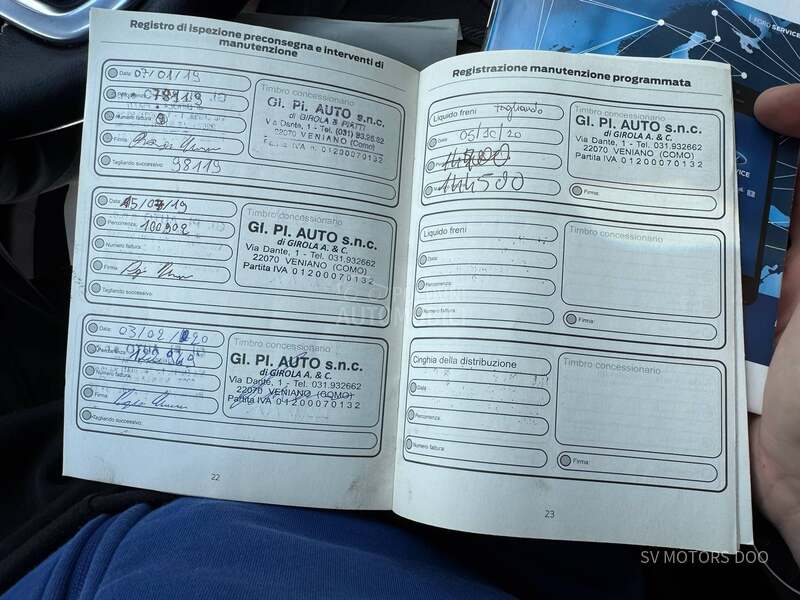 Registro di ispezione preconsegna e interventi di
manutenzione
Data 07/01/19
78119
Numero fattura
Firma
Tagliando successivo 98119
Timbro concessionario
GI. PI. AUTO s.n.c.
di GIROLA & PIATTI
Via Dante, 1 - Tel. (031) 93.26.62
22070 VENIANO (Como)
Partita IVA 01200070132
Data 15/07/19
Percorrenza 100902
Numero fattura
Firma
Tagliando successivo
Timbro concessionario
GI. PI. AUTO s.n.c.
di GIROLA A. & C.
Via Dante, 1 - Tel. 031.932662
22070 VENIANO (COMO)
Partita IVA 01200070132
Data 03/02/20
Percorrenza
Numero fattura
Firma
Tagliando successivo
Timbro concessionario
GI. PI. AUTO s.n.c.
di GIROLA A. & C.
Via Dante, 1 - Tel. 031.932662
22070 VENIANO (COMO)
Partita IVA 01200070132
22
Registrazione manutenzione programmata
Liquido freni tagliando
Data 05/10/20
144500
Timbro concessionario
GI. PI. AUTO s.n.c.
di GIROLA A. & C.
Via Dante, 1 - Tel. 031.932662
22070 VENIANO (COMO)
Partita IVA 01200070132
Firma
Liquido freni
Data
Percorrenza
Numero fattura
Timbro concessionario
Firma
Cinghia della distribuzione
Data
Percorrenza
Numero fattura
Timbro concessionario
Firma
23
FORD SERVICE
SERVICE
SV MOTORS DOO